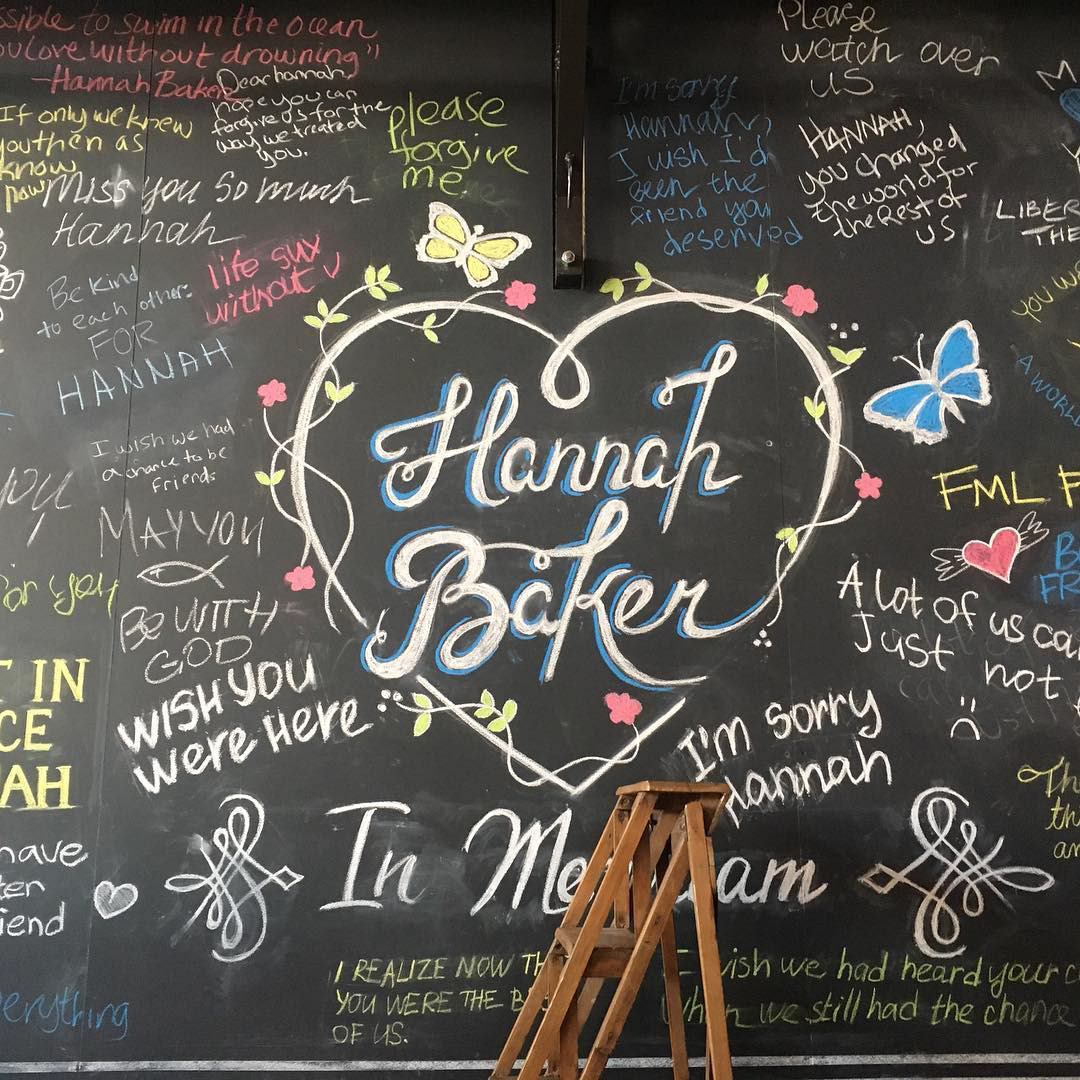 ssible to swim in the ocean
ou love without drowning"
-Hannah Baker
Dear hannah,
hope you can
forgive us for the
way we treated
you.
If only we knew
you then as
know
now
please
forgive
me
Miss you so much
Hannah
life sux
without U
Be Kind
to each other:
FOR
HANNAH
I wish we had
a chance to be
friends
MAY YOU
BE WITH
GOD
or you
T IN
CE
AH
WISH YOU
Were Here
have
ter
iend
erything
Please
watch over
us
I'm sorry
Hannah,
I wish I'd
been the
friend you
deserved
HANNAH,
you changed
the world for
the Rest of
US
LIBER
THE
YOU W
A WORL
FML F
B
FR
A lot of us ca
Just not
Hannah
Baker
I'm sorry
Hannah
In Me am
Th
th
an
I REALIZE NOW TH
YOU WERE THE B
OF US.
wish we had heard your c
When we still had the chance